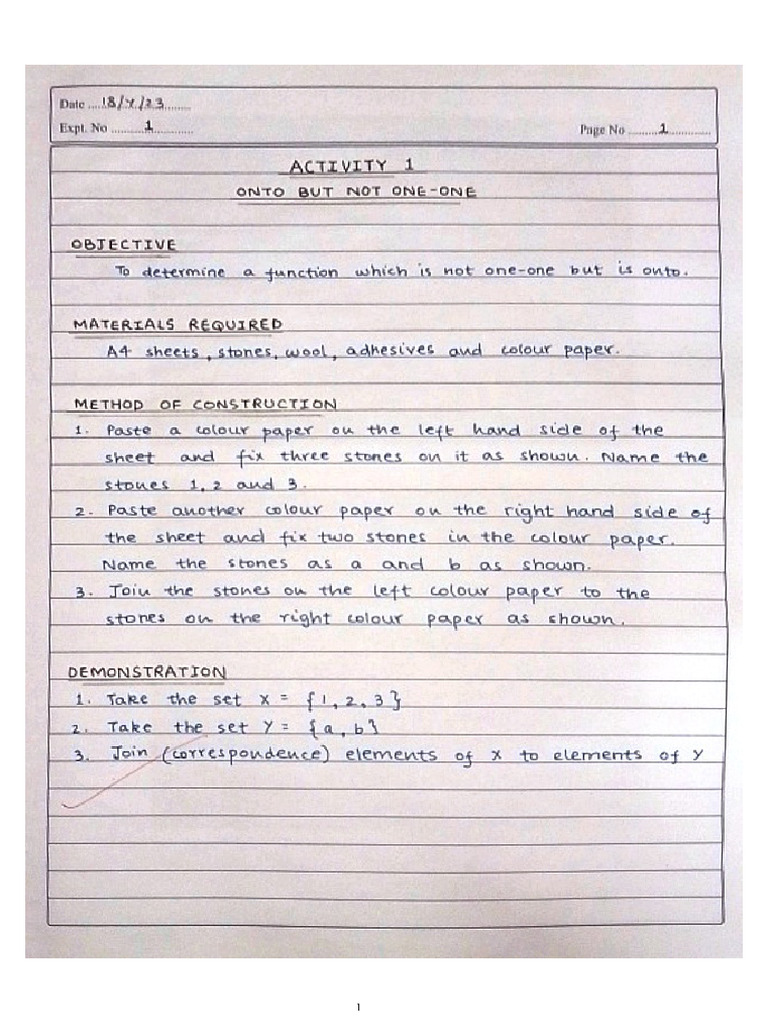 Date ..... 18/4/23 .........
Expt. No .......... 1 ............
Page No ......... 1 .............
ACTIVITY 1
ONTO BUT NOT ONE-ONE
OBJECTIVE
To determine a function which is not one-one but is onto.
MATERIALS REQUIRED
A4 sheets, stones, wool, adhesives and colour paper.
METHOD OF CONSTRUCTION
1. Paste a colour paper on the left hand side of the
sheet and fix three stones on it as shown. Name the
stones 1, 2 and 3.
2. Paste another colour paper on the right hand side of
the sheet and fix two stones in the colour paper.
Name the stones as a and b as shown.
3. Join the stones on the left colour paper to the
stones on the right colour paper as shown.
DEMONSTRATION
1. Take the set X = {1, 2, 3}
2. Take the set Y = {a, b}
3. Join (correspondence) elements of X to elements of Y
1